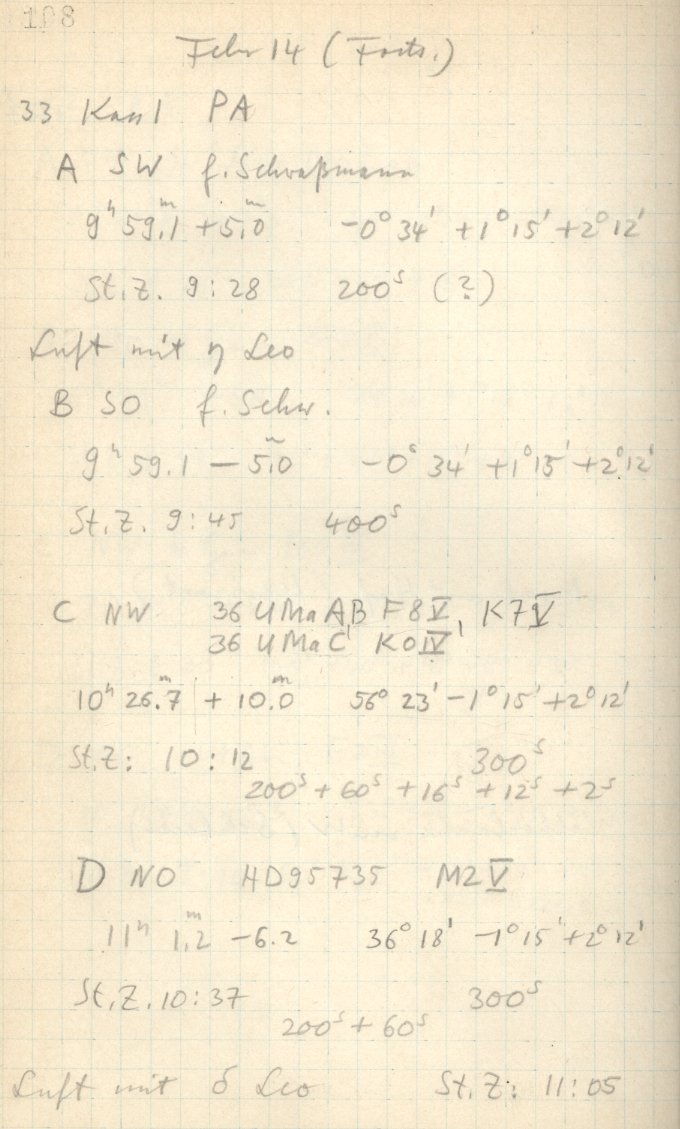 108
Febr 14 (Forts.)
33 Kass I PA
A SW f. Schwaßmann
9ʰ 59.1ᵐ + 5.0ᵐ -0° 34' +1° 15' +2° 12'
St.Z. 9:28 200ˢ (?)
Luft mit η Leo
B SO f. Schw.
9ʰ 59.1 — 5.0ᵐ -0° 34' +1° 15' +2° 12'
St.Z. 9:45 400ˢ
C NW 36 UMa AB F8V, K7V
36 UMa C K0IV
10ʰ 26.7ᵐ + 10.0ᵐ 56° 23' -1° 15' +2° 12'
St.Z: 10:12 300ˢ
200ˢ + 60ˢ + 16ˢ + 12ˢ + 2ˢ
D NO HD95735 M2V
11ʰ 1.2ᵐ -6.2 36° 18' -1° 15' +2° 12'
St.Z. 10:37 300ˢ
200ˢ + 60ˢ
Luft mit δ Leo St.Z: 11:05